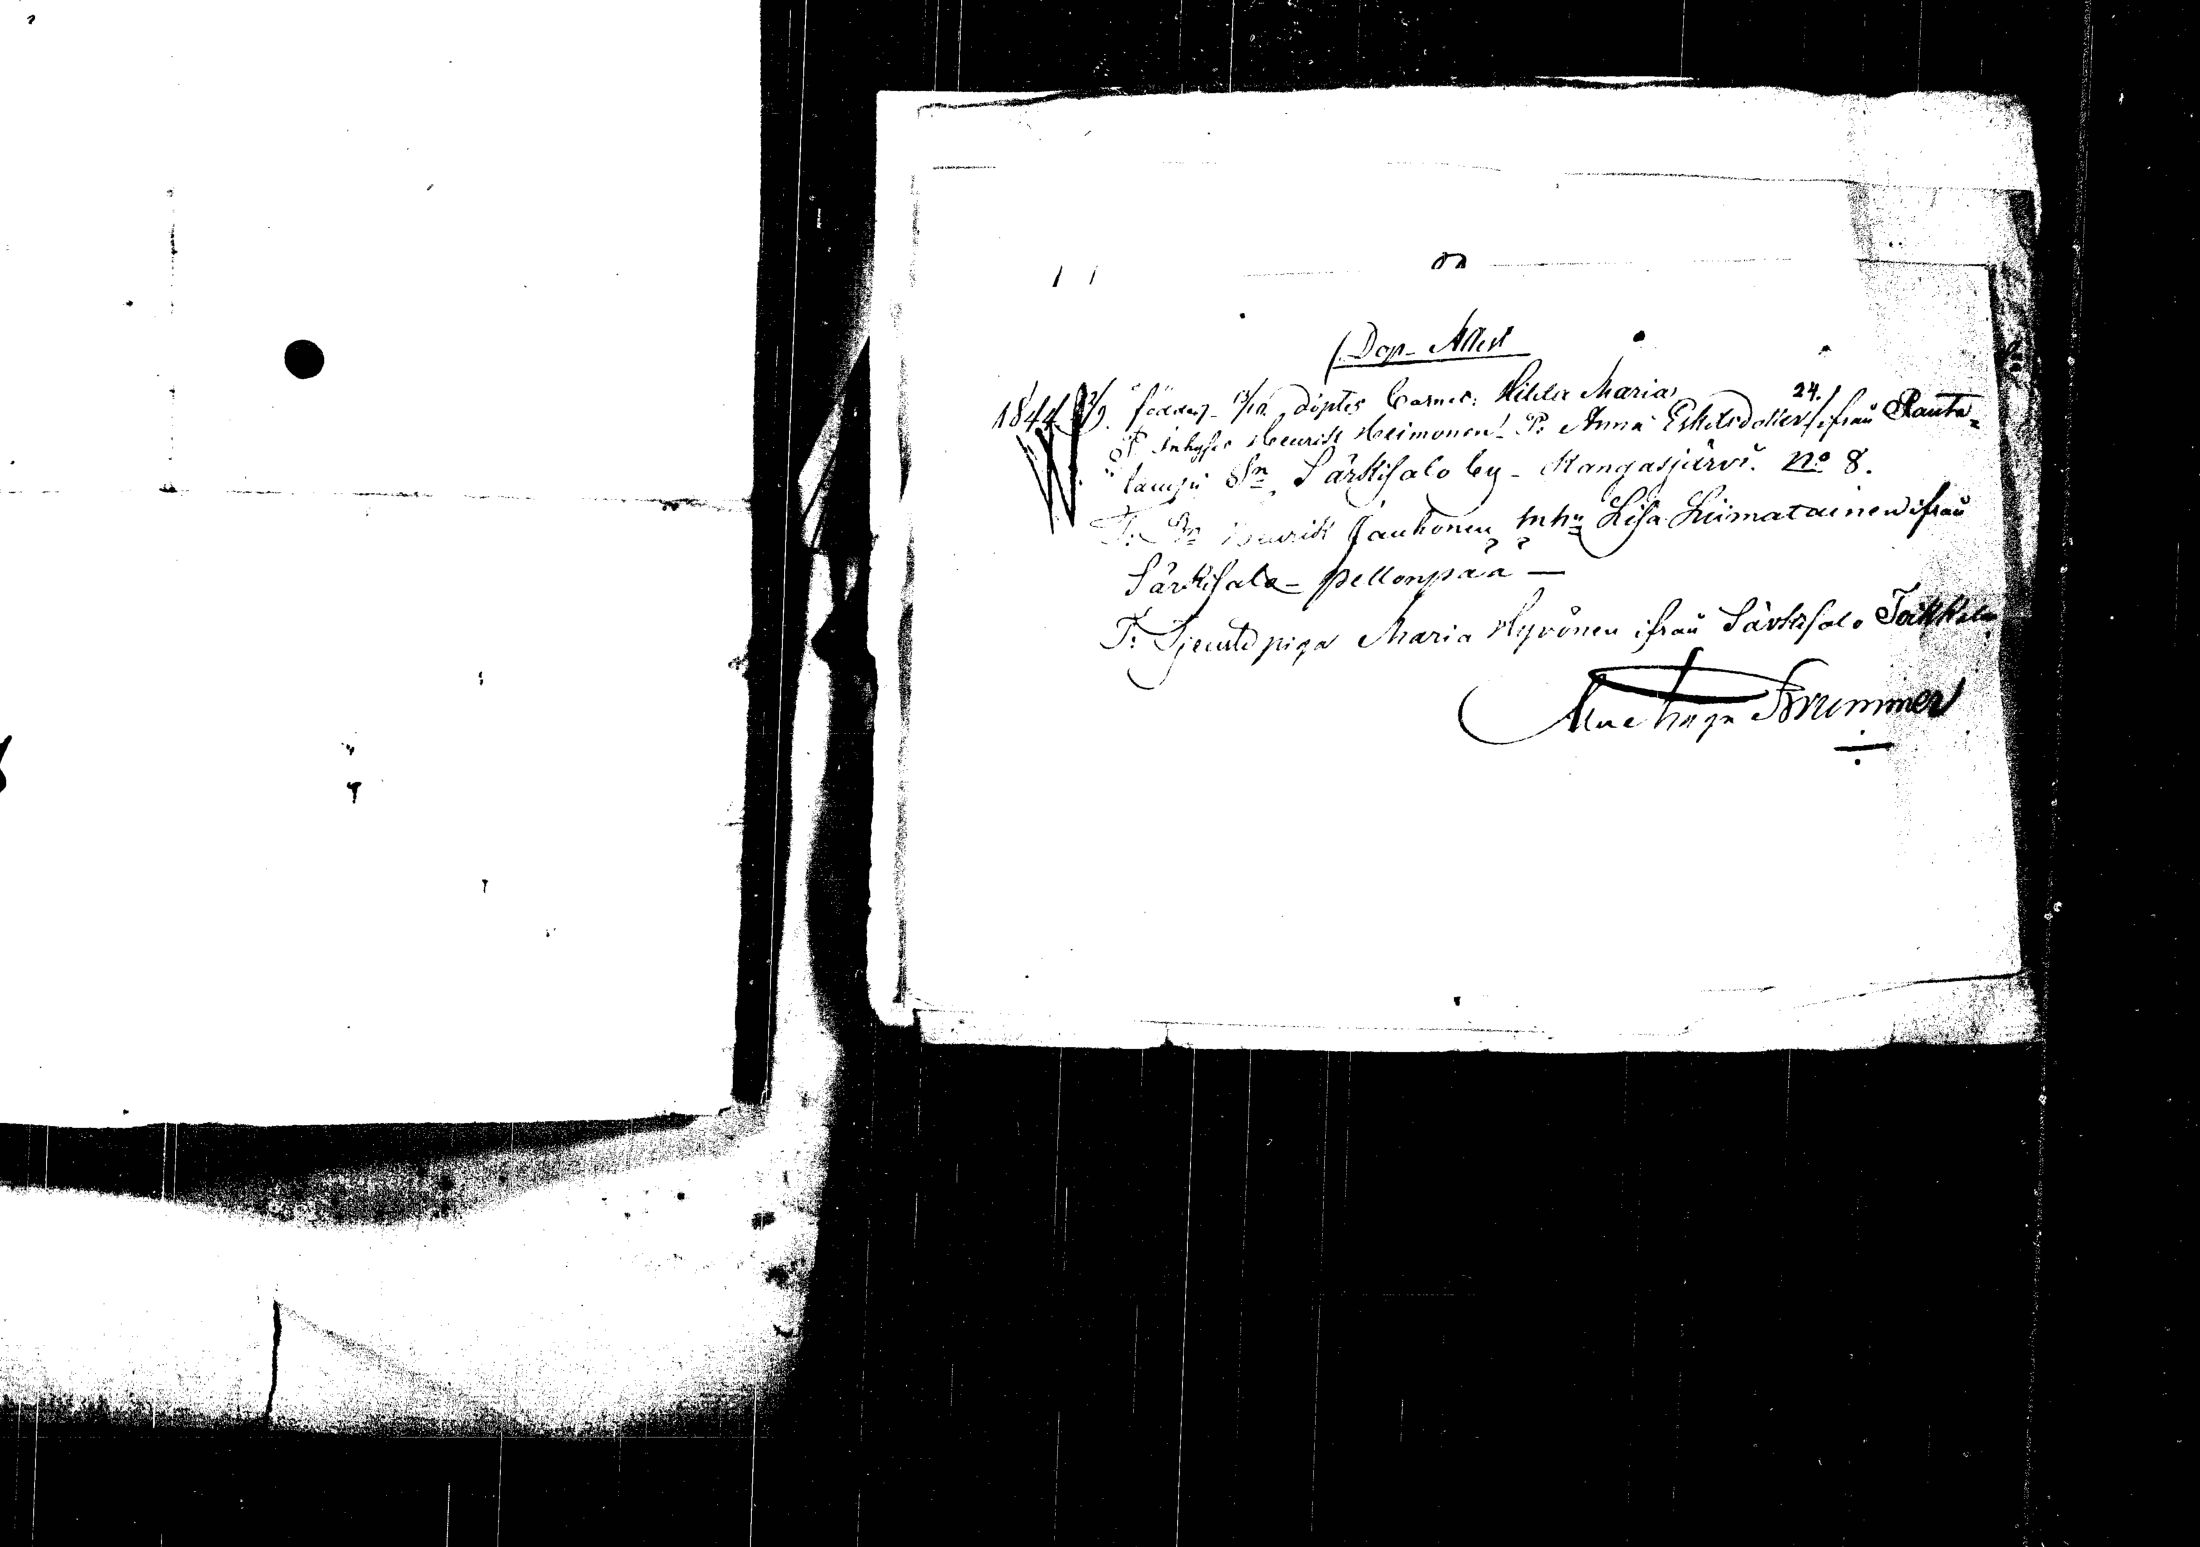 Dop-Attest
1844 föddes döptes Barnet: Hilda Maria
Inhyses Henrik Heimonen P: Anna Eskelsdotter 24. ifrån Ranta=
lampi Sn Särkisalo by - Kangasjärvi. No 8.
F: Henrik Jauhonen Inhy Lisa Liimatainen ifrån
Särkisalo - Pellonpää —
F: Tjenstepiga Maria Hyvönen ifrån Särkisalo Toikkala
Brummer